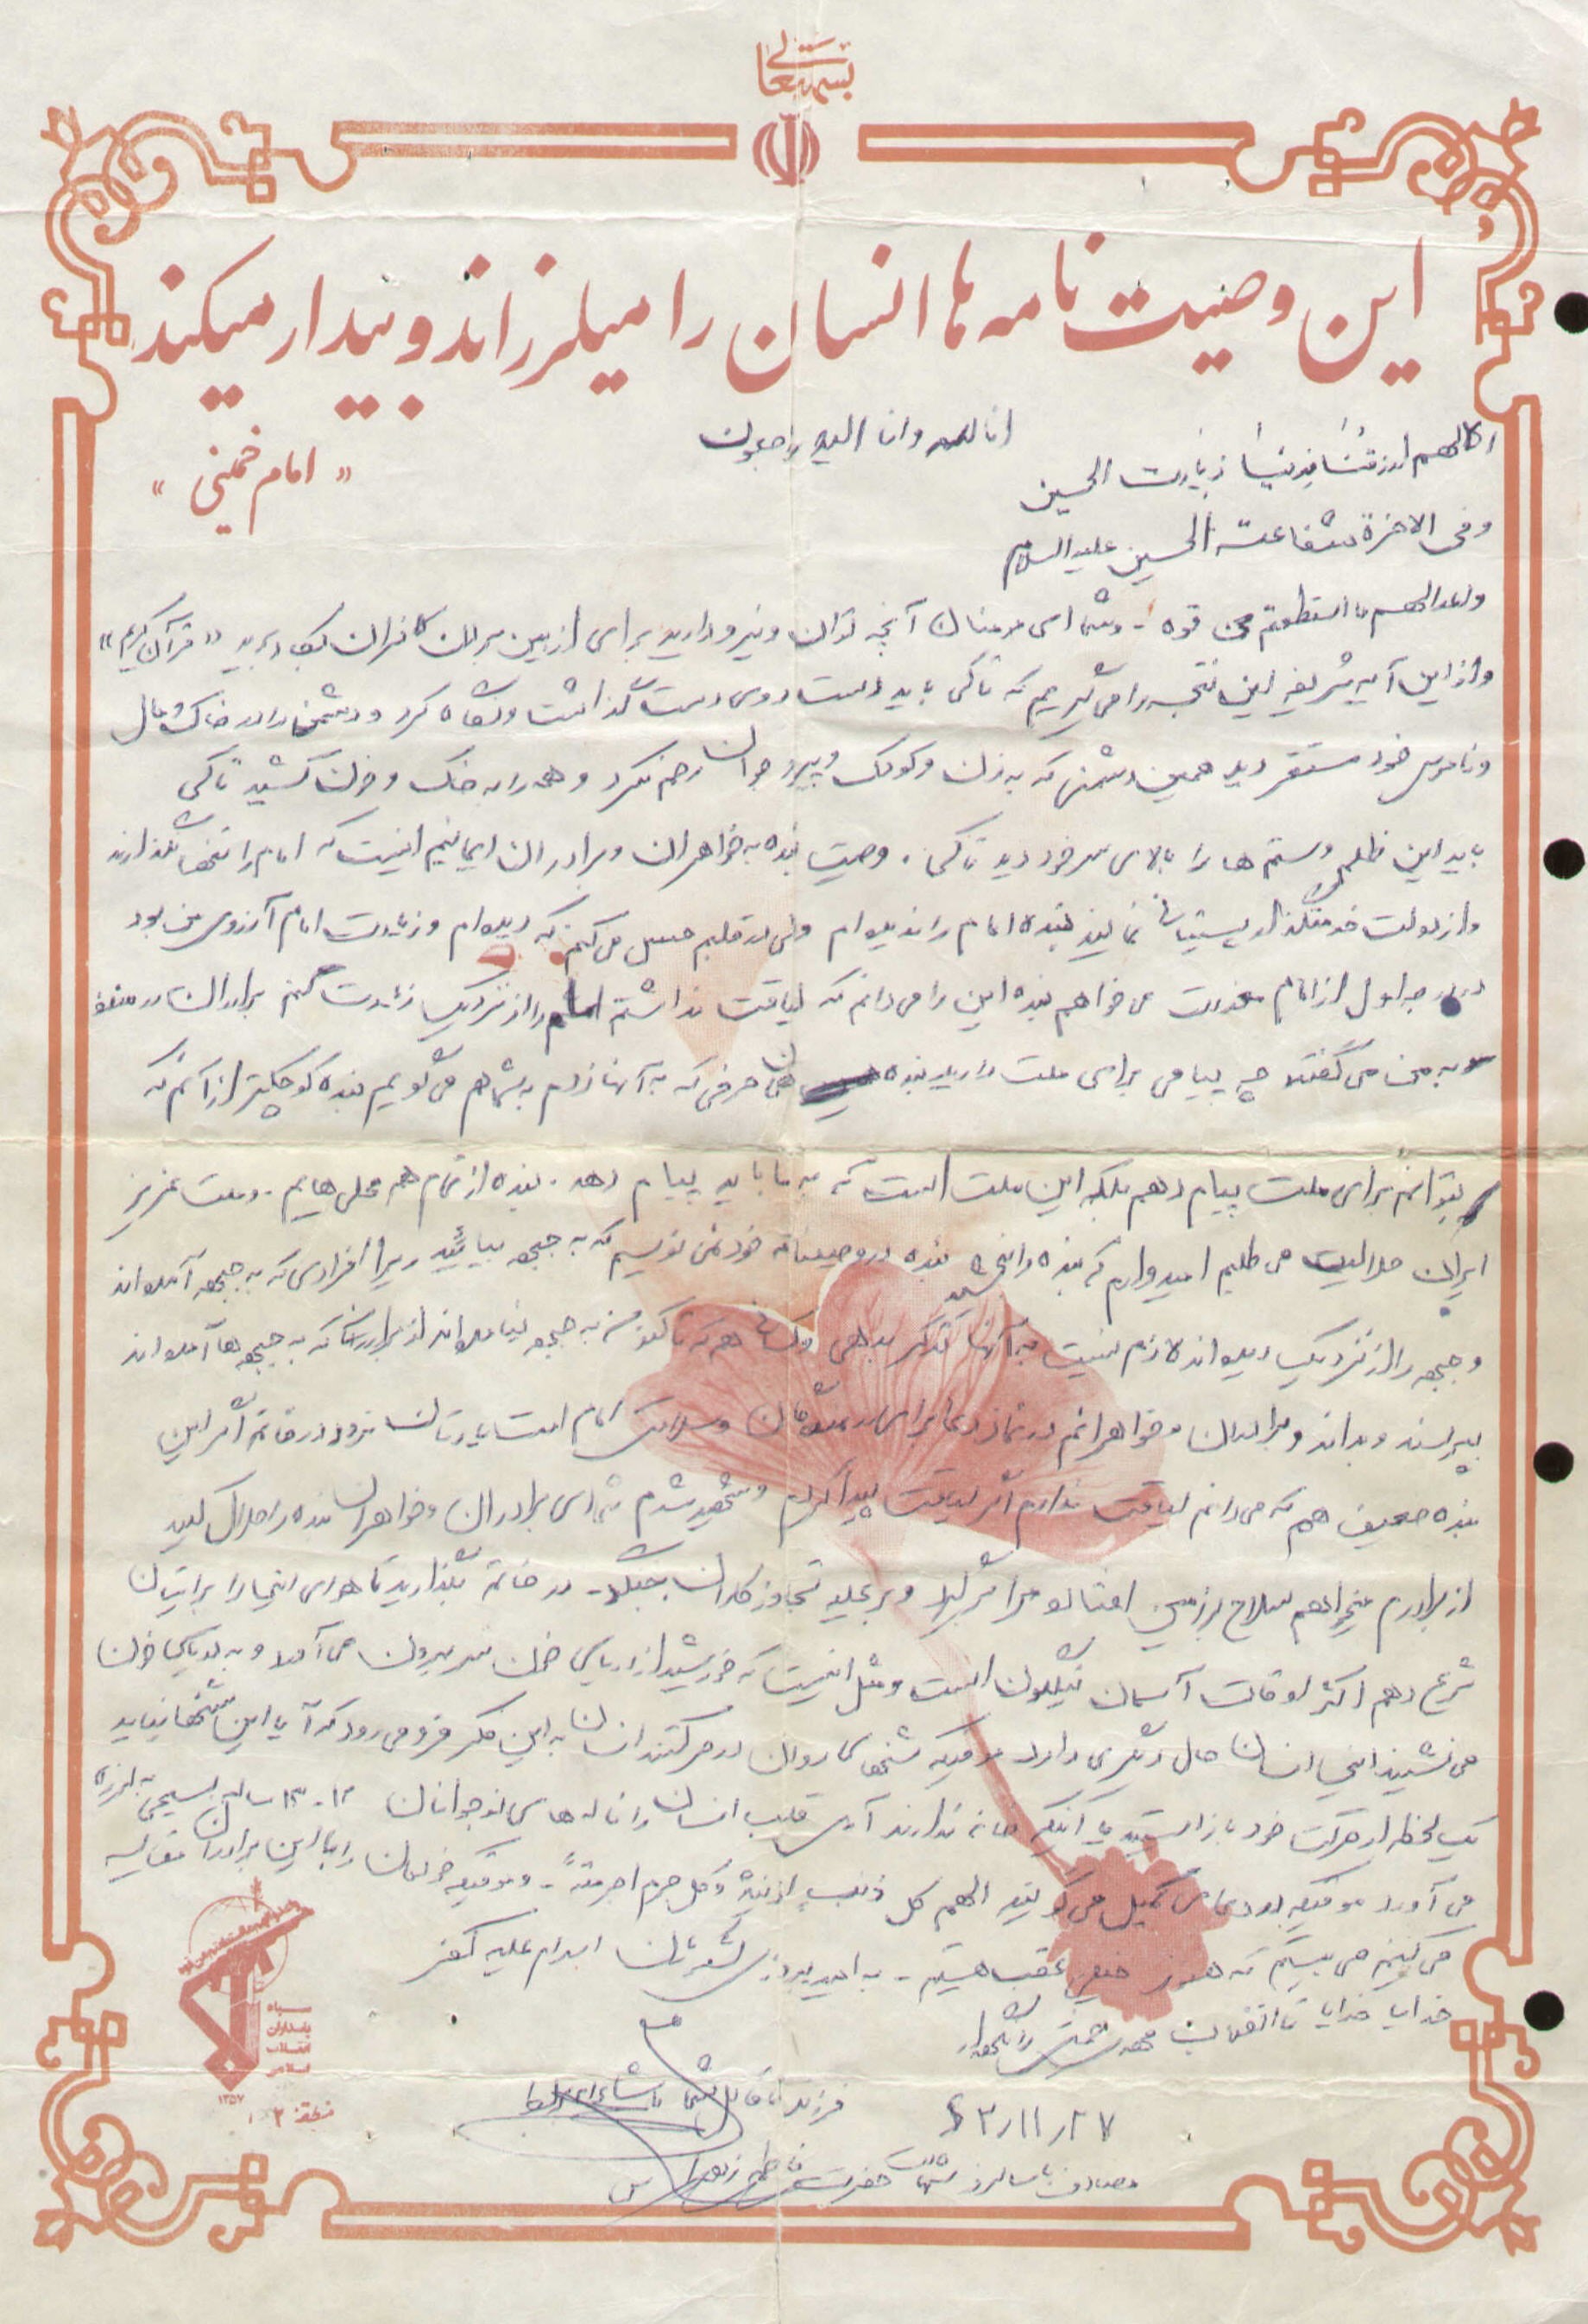 بسمه تعالی
این وصیت نامه ها انسان را میلرزاند و بیدار میکند
« امام خمینی »
انا لله و انا الیه راجعون
اللهم ارزقنا فی دنیا زیارت الحسین
و فی الاخرة شفاعت الحسین علیه السلام
واعدالهم ما استطعتم من قوه - و شما ای مومنان آنچه توان و نیرو دارید برای از بین بردن کافران بکار برید «قرآن کریم»
و از این آیه شریفه این نتیجه را می گیریم که تا کی باید دست روی دست گذاشت و نگاه کرد و دشمن را در خاک و مال
و ناموس خود مستقر دید همین دشمنی که به زن و کودک و پیر و جوان رحم نکرد و همه را به خاک و خون کشید تا کی
باید این ظلم و ستم ها را بالای سر خود دید تا کی . وصیت بنده به خواهران و برادران ایمانیم اینست که امام را تنها نگذارند
و از دولت خدمتگذار پشتیبانی نمایند بنده امام را ندیده ام ولی در قلبم حس می کنم که دیده ام و زیارت امام آرزوی من بود
در درجه اول از امام معذرت می خواهم بنده این را می دانم که لیاقت نداشتم امام را از نزدیک زیارت کنم برادران در منطقه
به من می گفتند چه پیامی برای ملت دارید بنده همان حرفی که به آنها زدم به شما هم می گویم بنده کوچکتر از آنم که
بتوانم برای ملت پیام دهم بلکه این ملت است که به ما باید پیام دهد . بنده از تمام هم محلی هایم . و ملت عزیز
ایران حلالیت می طلبم امیدوارم که بنده را ببخشید بنده در وصیتنامه خود نمی نویسم که به جبهه بیائید زیرا افرادی که به جبهه آمده اند
و جبهه را از نزدیک دیده اند لازم نیست به آنها تذکر بدهی و کسانی هم که تا کنون به جبهه نیامده اند از برادرانی که به جبهه ها آمده اند
بپرسند و بدانند و برادران و خواهرانم در نماز دعا برای رزمندگان و سلامتی امام امت یادتان نرود در خاتمه اگر این
بنده ضعیف هم که می دانم لیاقت ندارم اگر لیاقت پیدا کردم و شهید شدم شما ای برادران و خواهران بنده را حلال کنید
از برادرم میخواهم سلاح بر زمین افتاده مرا بگیرد و بر علیه تجاوزکاران بجنگد - در خاتمه بگذارید تا هوای اینجا را برایتان
شرح دهم اکثر اوقات آسمان نیلگون است و مثل اینست که خورشید از دریای خون سر بیرون می آورد و به دریای خون
می نشیند اینجا انسان حال دیگری دارد موقعیکه تنهای روان در حرکتند انسان به این فکر فرو می رود که آیا این تنها نباید
یک لحظه از حرکت خود باز ایستند یا اینکه خانه ندارند آری قلب انسان را ناله های نوجوانان ۱۲ - ۱۳ ساله بسیجی به لرزه
می آورد موقعیکه در دعای کمیل می گویند الهم کل ذنب اذنبته و کل جرم اجرمته - و موقعیکه خودمان را با این برادران مقایسه
می کنیم می بینیم که هنوز خیلی عقب هستیم - به امید پیروزی لشکر اسلام علیه کفر
خدایا خدایا تا انقلاب مهدی خمینی را نگهدار
فرزند شما
۶۲/۱۱/۲۷
مصادف با سالروز شهادت حضرت فاطمه زهرا س
سپاه پاسداران انقلاب اسلامی
۱۳۵۷
منطقه ۲